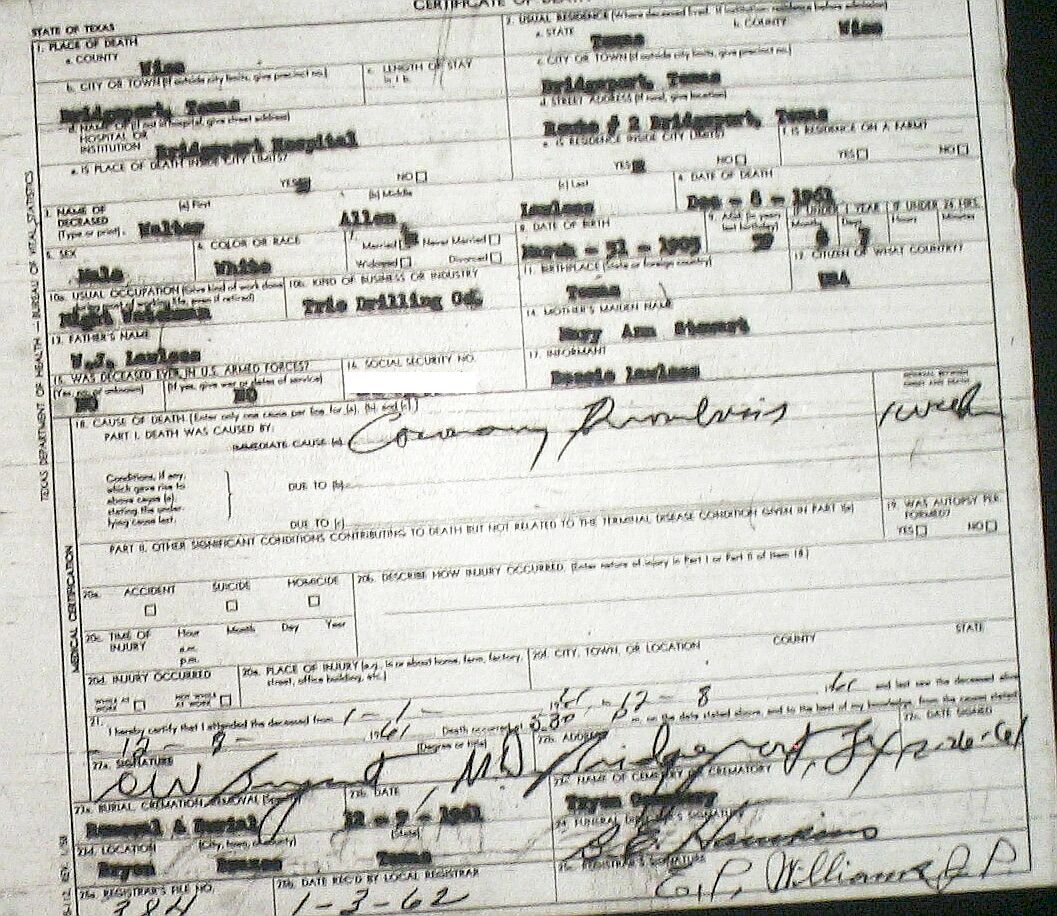 CERTIFICATE OF DEATH
STATE OF TEXAS
1. PLACE OF DEATH
a. COUNTY
Wise
2. USUAL RESIDENCE (Where deceased lived. If institution: residence before admission)
a. STATE
Texas
b. COUNTY
Wise
b. CITY OR TOWN (If outside city limits, give precinct no.)
Bridgeport, Texas
c. LENGTH OF STAY
in 1 b.
c. CITY OR TOWN (If outside city limits, give precinct no.)
Bridgeport, Texas
d. NAME OF (If not in hospital, give street address)
HOSPITAL OR
INSTITUTION
Bridgeport Hospital
d. STREET ADDRESS (If rural, give location)
Route # 2 Bridgeport, Texas
e. IS PLACE OF DEATH INSIDE CITY LIMITS?
YES NO
e. IS RESIDENCE INSIDE CITY LIMITS?
YES NO
f. IS RESIDENCE ON A FARM?
YES NO
3. NAME OF
DECEASED
(Type or print)
(a) First
Walter
(b) Middle
Allen
(c) Last
Lawless
4. DATE OF DEATH
Dec - 8 - 1961
5. SEX
Male
6. COLOR OR RACE
White
7.
Married Never Married
Widowed Divorced
8. DATE OF BIRTH
March - 31 - 1905
9. AGE (In years
last birthday)
IF UNDER 1 YEAR
Months Days
IF UNDER 24 HRS.
Hours Minutes
10a. USUAL OCCUPATION (Give kind of work done
during most of working life, even if retired)
Night Watchman
10b. KIND OF BUSINESS OR INDUSTRY
Trio Drilling Co.
11. BIRTHPLACE (State or foreign country)
Texas
12. CITIZEN OF WHAT COUNTRY?
USA
13. FATHER'S NAME
W.J. Lawless
14. MOTHER'S MAIDEN NAME
Mary Ann Stewart
15. WAS DECEASED EVER IN U.S. ARMED FORCES?
(Yes, no, or unknown)
NO
(If yes, give war or dates of service)
NO
16. SOCIAL SECURITY NO.
17. INFORMANT
Bessie Lawless
18. CAUSE OF DEATH (Enter only one cause per line for (a), (b), and (c).)
PART I. DEATH WAS CAUSED BY:
IMMEDIATE CAUSE (a)
Coronary Thrombosis
INTERVAL BETWEEN
ONSET AND DEATH
1 week
Conditions, if any,
which gave rise to
above cause (a),
stating the under-
lying cause last.
DUE TO (b)
DUE TO (c)
PART II. OTHER SIGNIFICANT CONDITIONS CONTRIBUTING TO DEATH BUT NOT RELATED TO THE TERMINAL DISEASE CONDITION GIVEN IN PART I(a)
19. WAS AUTOPSY PER-
FORMED?
YES NO
20a. ACCIDENT SUICIDE HOMICIDE
20b. DESCRIBE HOW INJURY OCCURRED. (Enter nature of injury in Part I or Part II of item 18.)
20c. TIME OF
INJURY
Hour Month Day Year
a.m.
p.m.
20d. INJURY OCCURRED
WHILE AT
WORK
NOT WHILE
AT WORK
20e. PLACE OF INJURY (e.g., in or about home, farm, factory,
street, office building, etc.)
20f. CITY, TOWN, OR LOCATION COUNTY STATE
21.
I hereby certify that I attended the deceased from 1-1- 1961, to 12-8 1961 and last saw the deceased alive
12-8- 1961 Death occurred at 5:30 P m. on the date stated above, and to the best of my knowledge, from the causes stated.
22a. SIGNATURE (Degree or title)
OW Bryant M.D.
22b. ADDRESS
Bridgeport, Tex
22c. DATE SIGNED
12-26-61
23a. BURIAL, CREMATION, REMOVAL (Specify)
Removal & Burial
23b. DATE
12 - 9 - 1961
23c. NAME OF CEMETERY OR CREMATORY
Tryon Cemetery
23d. LOCATION (City, town, or county) (State)
Texas
24. FUNERAL DIRECTOR'S SIGNATURE
B.E. Hawkins
25a. REGISTRAR'S FILE NO.
384
25b. DATE REC'D BY LOCAL REGISTRAR
1-3-62
25c. REGISTRAR'S SIGNATURE
E.P. Williams J.P.
TEXAS DEPARTMENT OF HEALTH — BUREAU OF VITAL STATISTICS
MEDICAL CERTIFICATION